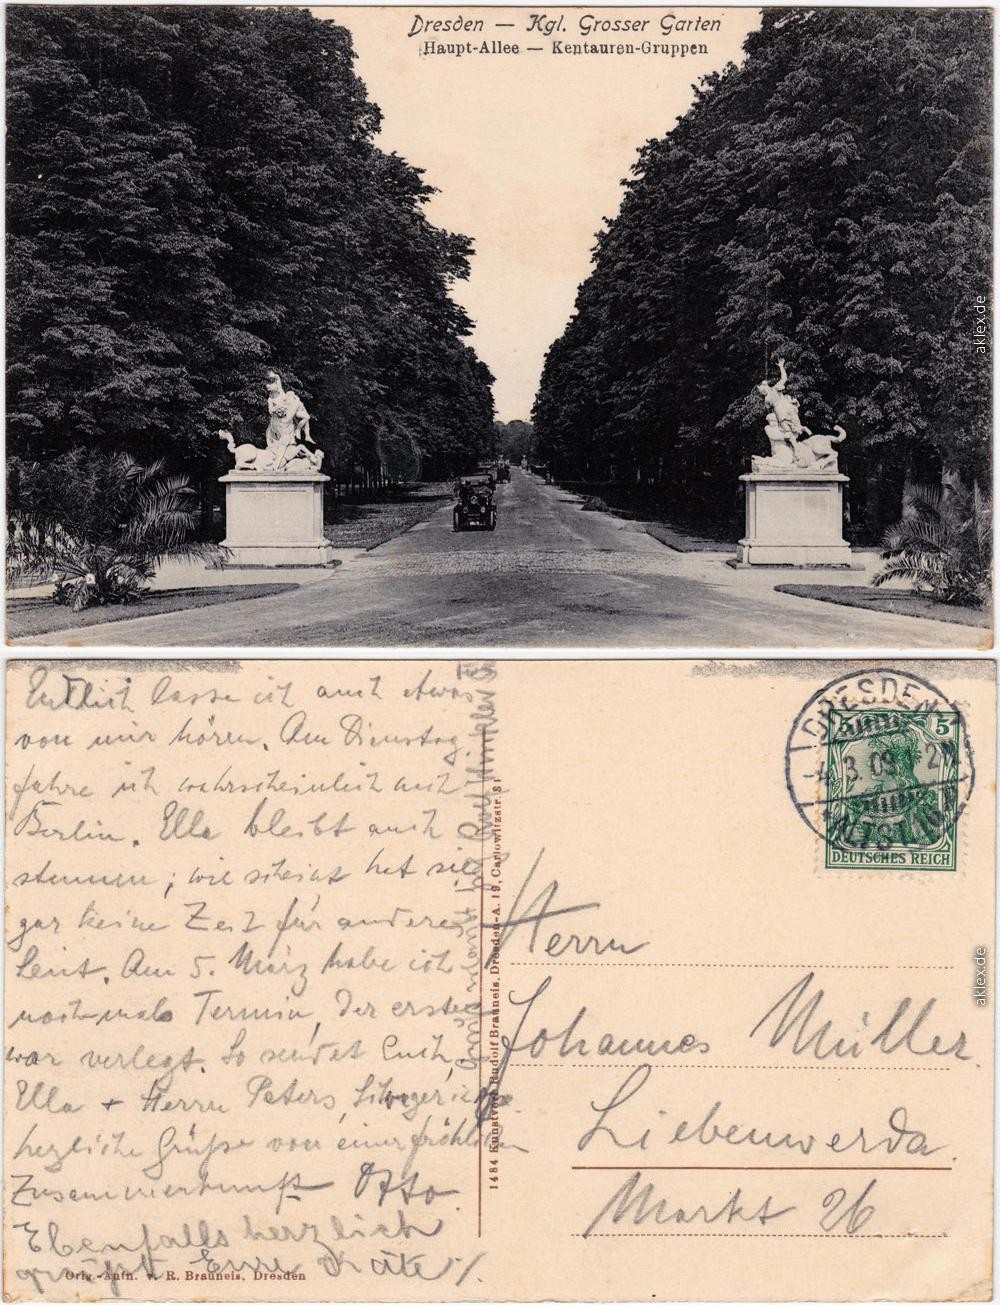 Dresden — Kgl. Grosser Garten
Haupt-Allee — Kentauren-Gruppen
aklex.de
Endlich lasse ich auch etwas
von mir hören. Am Dienstag
fahre ich wahrscheinlich nach
Berlin. Ella bleibt auch
stumm; wie scheint hat sie
gar keine Zeit für andere
Leut. Am 5. März habe ich
nochmals Termin, der erste
war verlegt. So sendet Euch,
Ella + Herrn Peters,
herzliche Grüße von einer fröhlichen
Zusammenkunft Otto.
Ebenfalls herzlich
grüßt Eure Käte
Orig.-Aufn. v. R. Brauneis, Dresden
1484 Kunstverl. Rudolf Brauneis, Dresden-A. 19, Carlowitzstr. 31
DRESDEN
-4.3.09. 2
ALTST.
5 5
DEUTSCHES REICH
Herrn
Johannes Müller
Liebenwerda.
Markt 26.
aklex.de